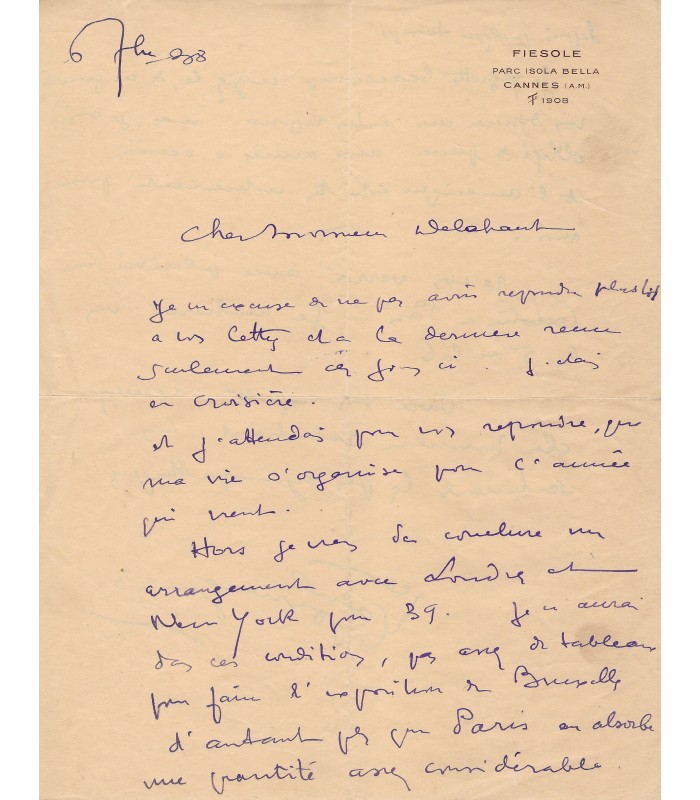 6 7bre 38
FIESOLE
PARC ISOLA BELLA
CANNES (A.M.)
1908
Cher Monsieur Delahaut
Je m'excuse de ne pas avoir repondre plus tôt
a vos lettres et a la derniere recue
seulement ces jours ci. j'etais
en croisière.
et j'attendais pour vos repondre, que
ma vie s'organise pour l'année
qui vient.
Hors je viens de conclure un
arrangement avec Londres et
New York pour 39. Je n'aurai
dans ces conditions, pas assez de tableaux
pour faire l'exposition de Bruxelles
d'autant plus que Paris en absorbe
une quantité assez considérable.